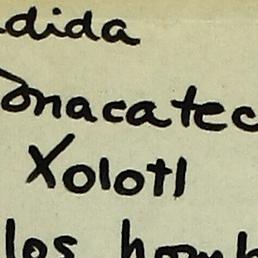 dida
onacatec
Xolotl
los homb